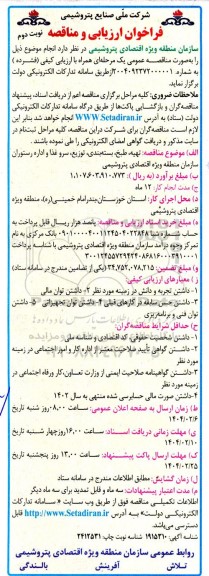 شرکت ملی صنایع پتروشیمی
فراخوان ارزیابی و مناقصه
نوبت دوم
سازمان منطقه ویژه اقتصادی پتروشیمی در نظر دارد انجام موضوع ذیل
را به‌صورت مناقصه عمومی یک مرحله‌ای همراه با ارزیابی کیفی (فشرده)
به شماره ازطریق سامانه تدارکات الکترونیکی دولت
برگزار نماید.
ملاحظات ضروری: کلیه مراحل برگزاری مناقصه اعم از دریافت اسناد، پیشنهاد
مناقصه‌گران و بازگشائی پاکت‌ها از طریق درگاه سامانه تدارکات الکترونیکی
دولت (ستاد) به آدرس www.Setadiran.ir انجام خواهد شد بنابر این
لازم است مناقصه‌گران برای شرکت دراین مناقصه، کلیه مراحل ثبت‌نام در
سایت مذکور و دریافت گواهی امضای الکترونیکی را طی نموده باشند.
الف) موضوع مناقصه: تهیه، طبخ، بسته‌بندی، توزیع، سرو غذا و اداره رستوران
سازمان منطقه ویژه اقتصادی پتروشیمی
ب) مبلغ برآورد (به ریال):
ج) مدت انجام کار: ۱۲ ماه
د) محل اجرای کار: استان خوزستان،بندرامام خمینی(ره)، منطقه ویژه
اقتصادی پتروشیمی
ه) مبلغ خرید اسناد ارزیابی و مناقصه: پانصد هزار ریال قابل پرداخت به
حساب شماره شبا بانک مرکزی به نام
تمرکز وجوه درآمد سازمان منطقه ویژه اقتصادی پتروشیمی با شناسه پرداخت
و) مبلغ تضمین: (یکی از تضامین مندرج در سامانه ستاد)
ز) معیارهای ارزیابی کیفی:
۱-داشتن تجربه و دانش در زمینه مورد نظر ۲- داشتن توان مالی
۳-داشتن حسن سابقه در کارهای قبلی ۴-داشتن توان تجهیزاتی ۵-داشتن
توان فنی و برنامه‌ریزی
ح) حداقل شرایط مناقصه‌گران:
۱-داشتن شخصیت حقوقی، کد اقتصادی و شناسه ملی
۲-داشتن گواهی تأیید صلاحیت معتبر از اداره کار و امور اجتماعی در زمینه
مورد نظر
۳-داشتن گواهینامه صلاحیت ایمنی از وزارت تعاون،کار ورفاه اجتماعی در
زمینه مورد نظر
۴-داشتن صورت مالی حسابرسی شده منتهی به سال ۱۴۰۲
ط) زمان ارسال به صفحه اعلان عمومی: ساعت ۰۸:۰۰ روز شنبه تاریخ
۱۴۰۴/۰۲/۰۶
ی) مهلت زمانی دریافت اسناد: ساعت ۱۶:۰۰ روزچهار شنبه تاریخ
۱۴۰۴/۰۲/۱۰
ک) مهلت ارسال پاکت پیشنهاد: ساعت ۱۳:۰۰ روز پنجشنبه تاریخ
۱۴۰۴/۰۲/۲۵
ل) زمان گشایش: مطابق اطلاعات مندرج در سامانه ستاد
م) مدت اعتبار پیشنهادات: سه ماه و قابل تمدید برای سه ماه دیگر
اطلاعات تکمیلی مناقصه فوق از طریق وب سایت «سامانه تدارکات
الکترونیکی دولت» به آدرس http://www.Setadiran.ir قابل
دسترسی می‌باشد.
شناسه آگهی: ۱۹۱۵۳۱۰ شناسه نوبت چاپ: ۲۴۱۲۵۳۱
روابط عمومی سازمان منطقه ویژه اقتصادی پتروشیمی
تلاش آفرینش بالندگی